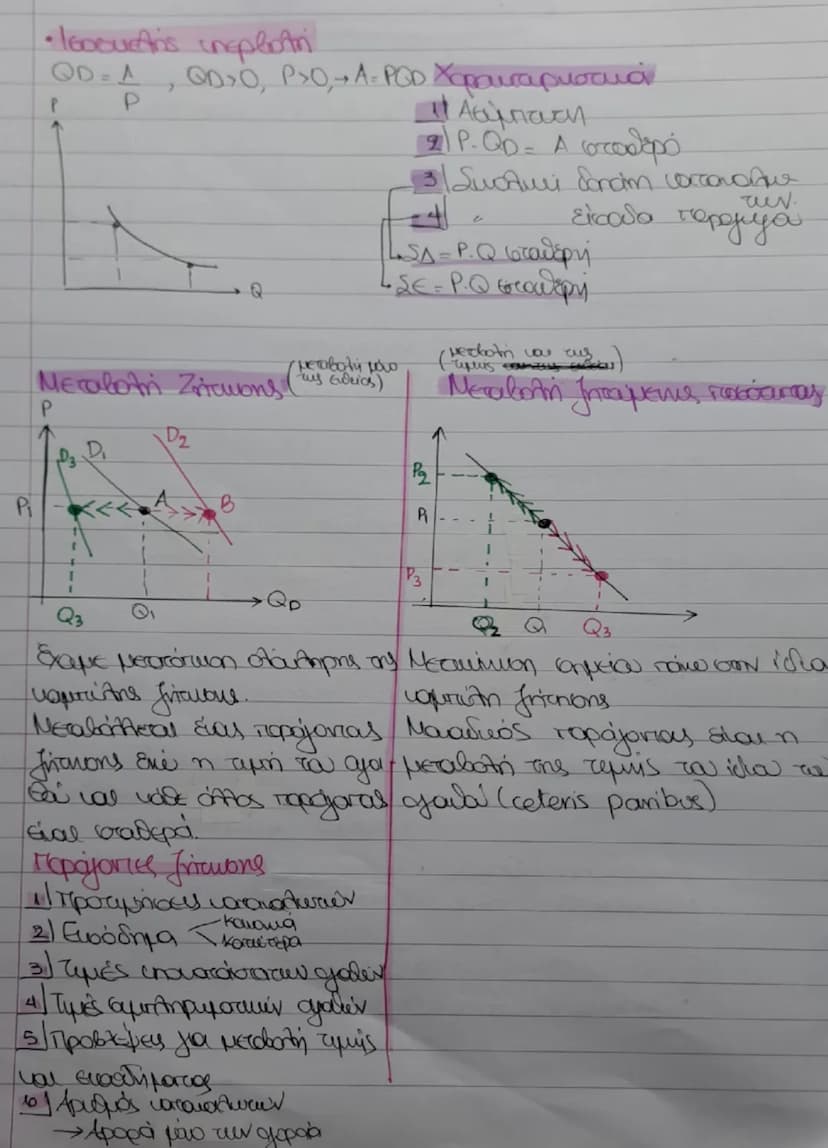 • Ισοσκελής υπερβολή
QD = A/P , QD>0, P>0, → A = PQD Χαρακτηριστικά
1) Ασύμπτωτη
2) P.QD = A σταθερό
3) Συνολική δαπάνη καταναλωτών
4) " έσοδα παραγωγών
ΣΔ = P.Q σταθερή
ΣΕ = P.Q σταθερή
P
Q
Μεταβολή Ζήτησης (μεταβολή μόνο της ευθείας)
P
D3 D1 D2
P1 A B
Q3 Q1 QD
Έχουμε μετατόπιση ολόκληρης της
καμπύλης ζήτησης.
Μεταβάλλεται ένας παράγοντας
ζήτησης ενώ η τιμή του αγα-
θού και κάθε άλλος παράγοντας
είναι σταθερά.
(μεταβολή και της τιμής)
Μεταβολή ζητούμενης ποσότητας
P2
P1
P3
Q2 Q1 Q3
Μετακίνηση σημείου πάνω στην ίδια
καμπύλη ζήτησης
Μοναδικός παράγοντας είναι η
μεταβολή της τιμής του ίδιου του
αγαθού (ceteris paribus)
Παράγοντες ζήτησης
1) Προτιμήσεις καταναλωτών
2) Εισόδημα < Κανονικά
Κατώτερα
3) Τιμές υποκατάστατων αγαθών
4) Τιμές συμπληρωματικών αγαθών
5) Προβλέψεις για μεταβολή τιμής
και εισοδήματος
6) Αριθμός καταναλωτών
→ Αφορά μόνο την αγορά